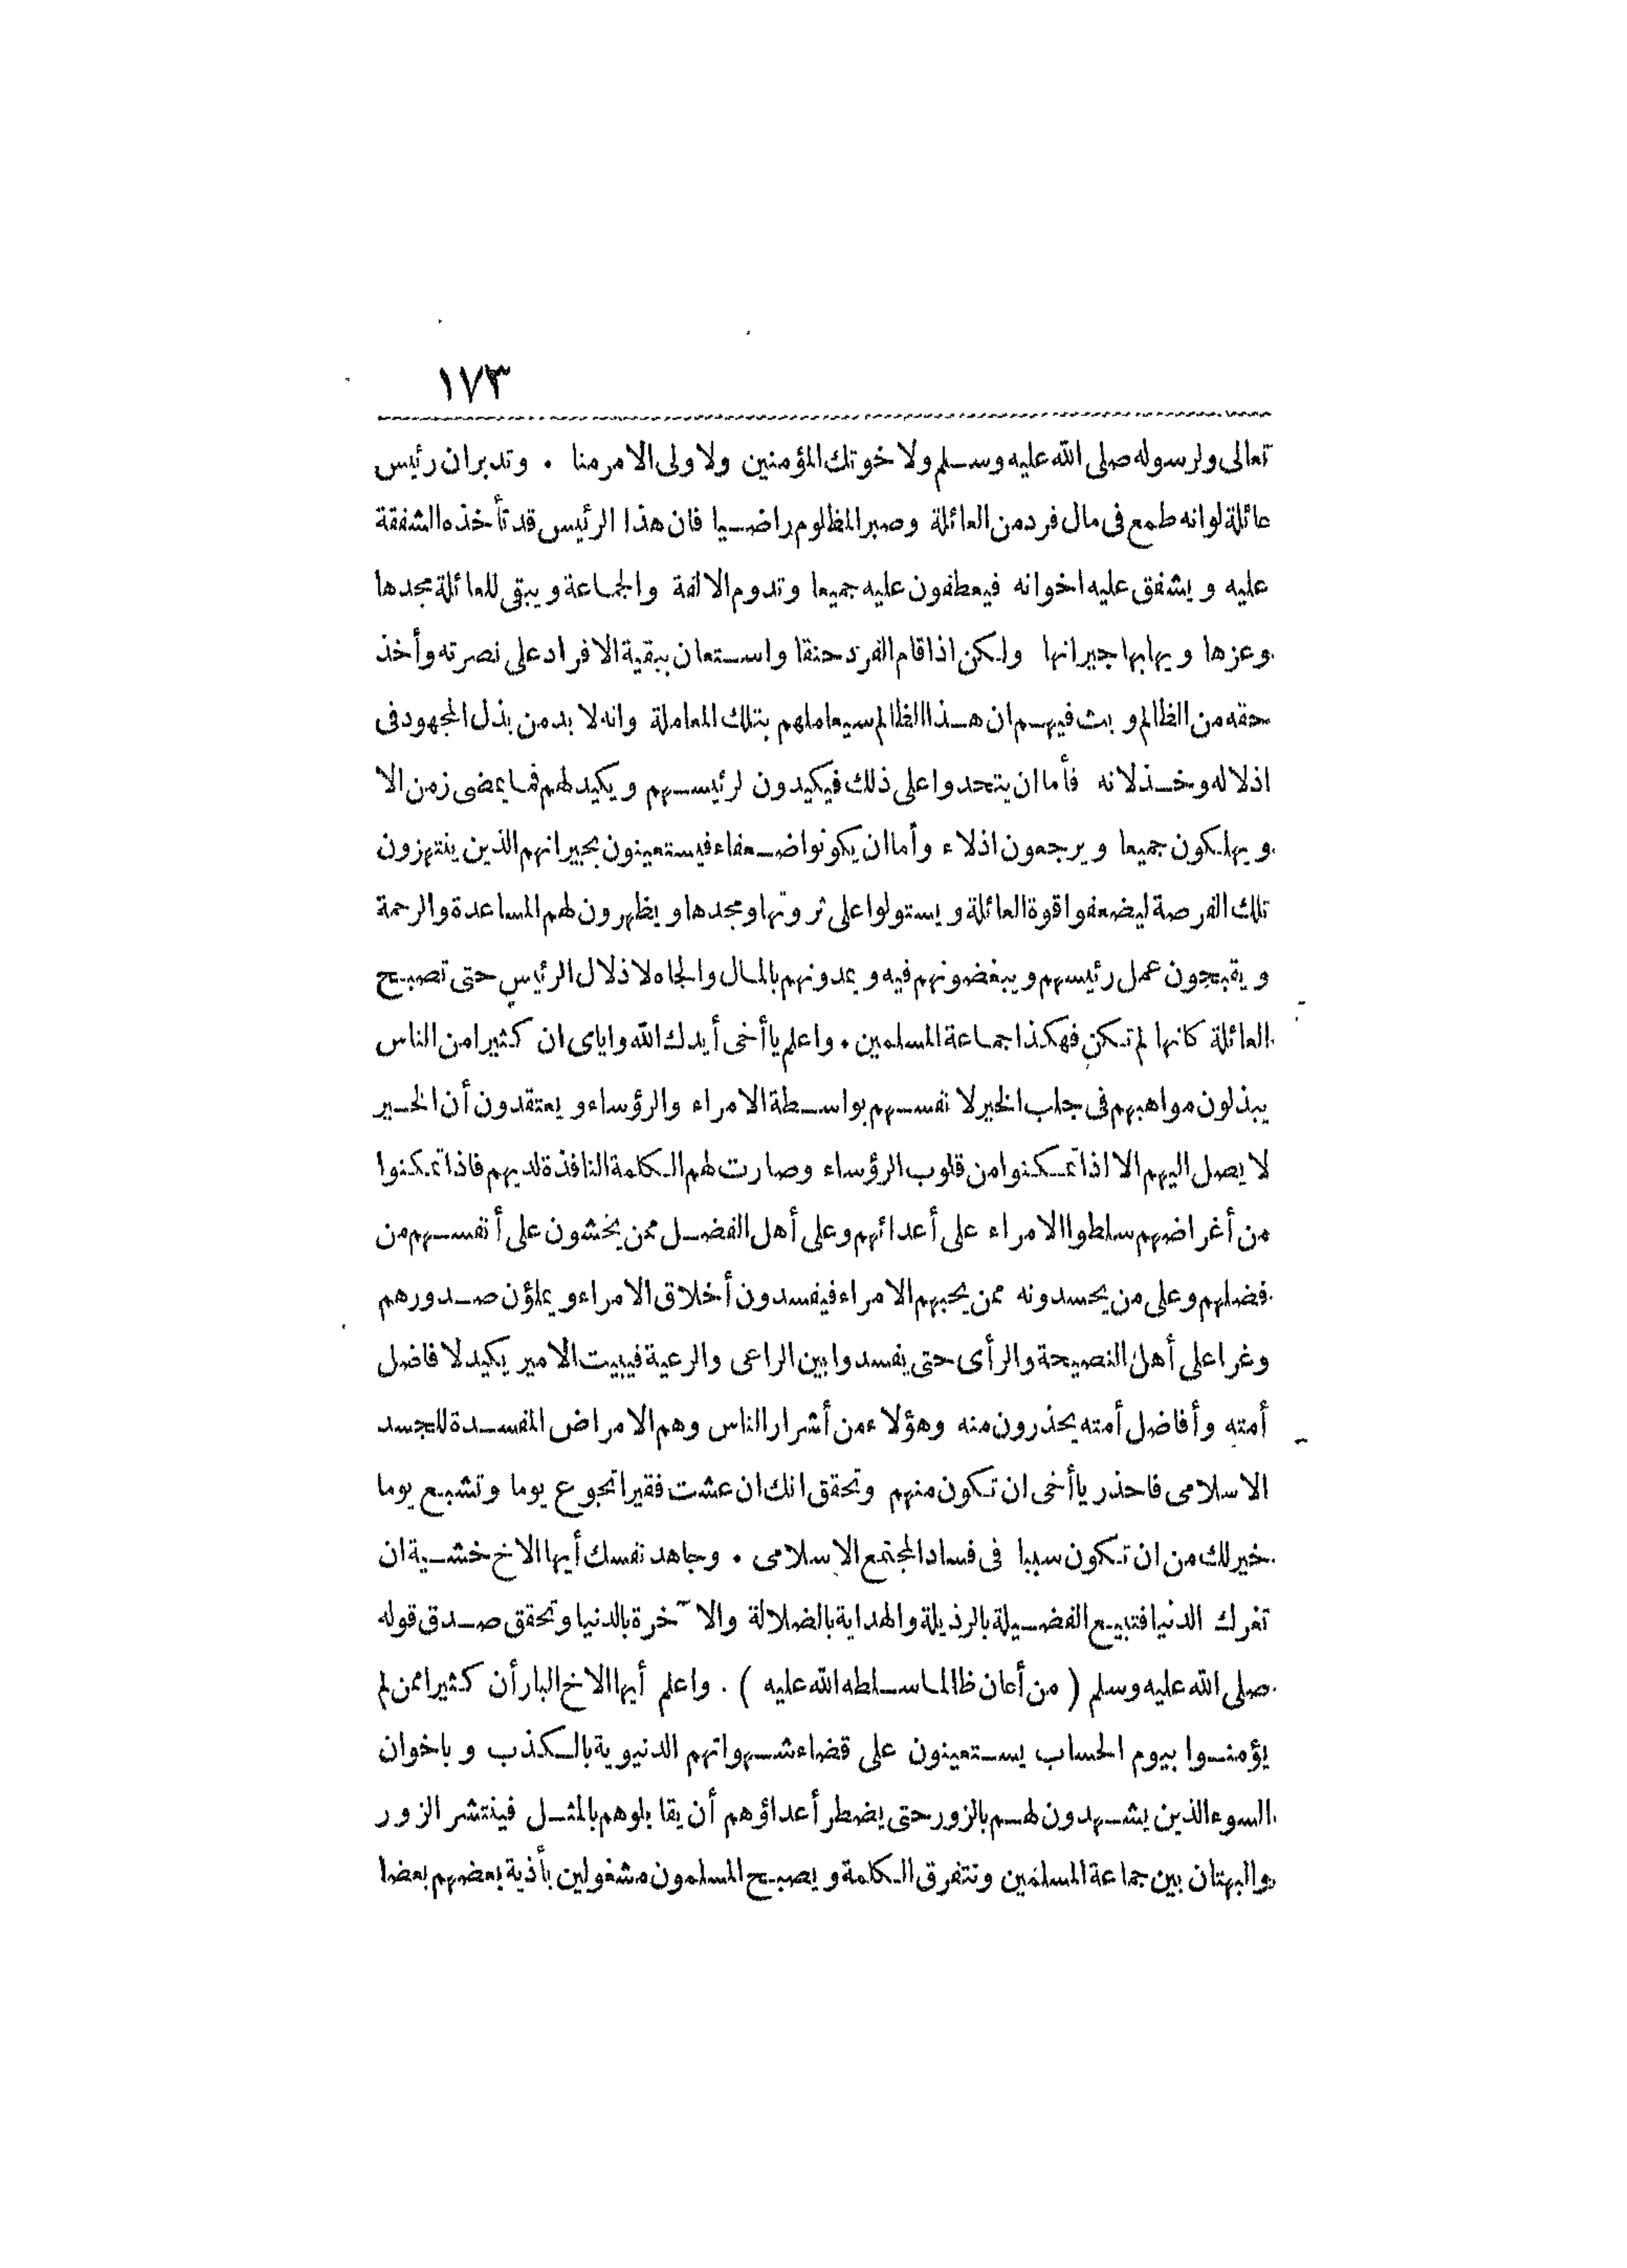 ١٧٣
تعالى ولرسوله صلى الله عليه وسلم ولاخوتك المؤمنين ولاولى الامر منا . وتدبر ان رئيس
عائلة لو انه طمع فى مال فرد من العائلة وصبر المظلوم راضيا فان هذا الرئيس قد تأخذه الشفقة
عليه ويشفق عليه اخوانه فيعطفون عليه جميعا وتدوم الالفة والجماعة ويبقى للعائلة مجدها
وعزها ويهابها جيرانها ولكن اذا قام الفرد حنقا واستعان ببقية الافراد على نصرته وأخذ
حقه من الظالم وبث فيهم ان هذا الظالم سيعاملهم بتلك المعاملة وانه لا بد من بذل المجهود فى
اذلاله وخذلانه فأما ان يتحدوا على ذلك فيكيدون لرئيسهم ويكيد لهم فما يمضى زمن الا
ويهلكون جميعا ويرجعون اذلاء وأما ان يكونوا ضعفاء فيستعينون بجيرانهم الذين ينتهزون
تلك الفرصة ليضعفوا قوة العائلة ويستولوا على ثروتها ومجدها ويظهرون لهم المساعدة والرحمة
ويقبحون عمل رئيسهم ويبغضونهم فيه ويمدونهم بالمال والجاه لاذلال الرئيس حتى تصبح
العائلة كانها لم تكن فهكذا جماعة المسلمين . واعلم ياأخى أيدك الله واياى ان كثيرا من الناس
يبذلون مواهبهم فى جلب الخير لا نفسهم بواسطة الامراء والرؤساء ويعتقدون أن الخير
لا يصل اليهم الا اذا تمكنوا من قلوب الرؤساء وصارت لهم الكلمة النافذة لديهم فاذا تمكنوا
من أغراضهم سلطوا الامراء على أعدائهم وعلى أهل الفضل ممن يخشون على أنفسهم من
فضلهم وعلى من يحسدونه ممن يحبهم الامراء فيفسدون أخلاق الامراء ويملؤن صدورهم
وغرا على أهل النصيحة والرأى حتى يفسدوا بين الراعى والرعية فيبيت الامير يكيد لافاضل
أمته وأفاضل أمته يحذرون منه وهؤلاء من أشرار الناس وهم الامراض المفسدة للجسد
الاسلامى فاحذر ياأخى ان تكون منهم وتحقق انك ان عشت فقيرا تجوع يوما وتشبع يوما
خير لك من ان تكون سببا فى فساد المجتمع الاسلامى . وجاهد نفسك أيها الاخ خشية ان
تغرك الدنيا فتبيع الفضيلة بالرذيلة والهداية بالضلالة والآخرة بالدنيا وتحقق صدق قوله
صلى الله عليه وسلم ( من أعان ظالما سلطه الله عليه ) . واعلم أيها الاخ البار أن كثيرا ممن لم
يؤمنوا بيوم الحساب يستعينون على قضاء شهواتهم الدنيوية بالكذب وباخوان
السوء الذين يشهدون لهم بالزور حتى يضطر أعداؤهم أن يقابلوهم بالمثل فينتشر الزور
والبهتان بين جماعة المسلمين وتتفرق الكلمة ويصبح المسلمون مشغولين بأذية بعضهم بعضا